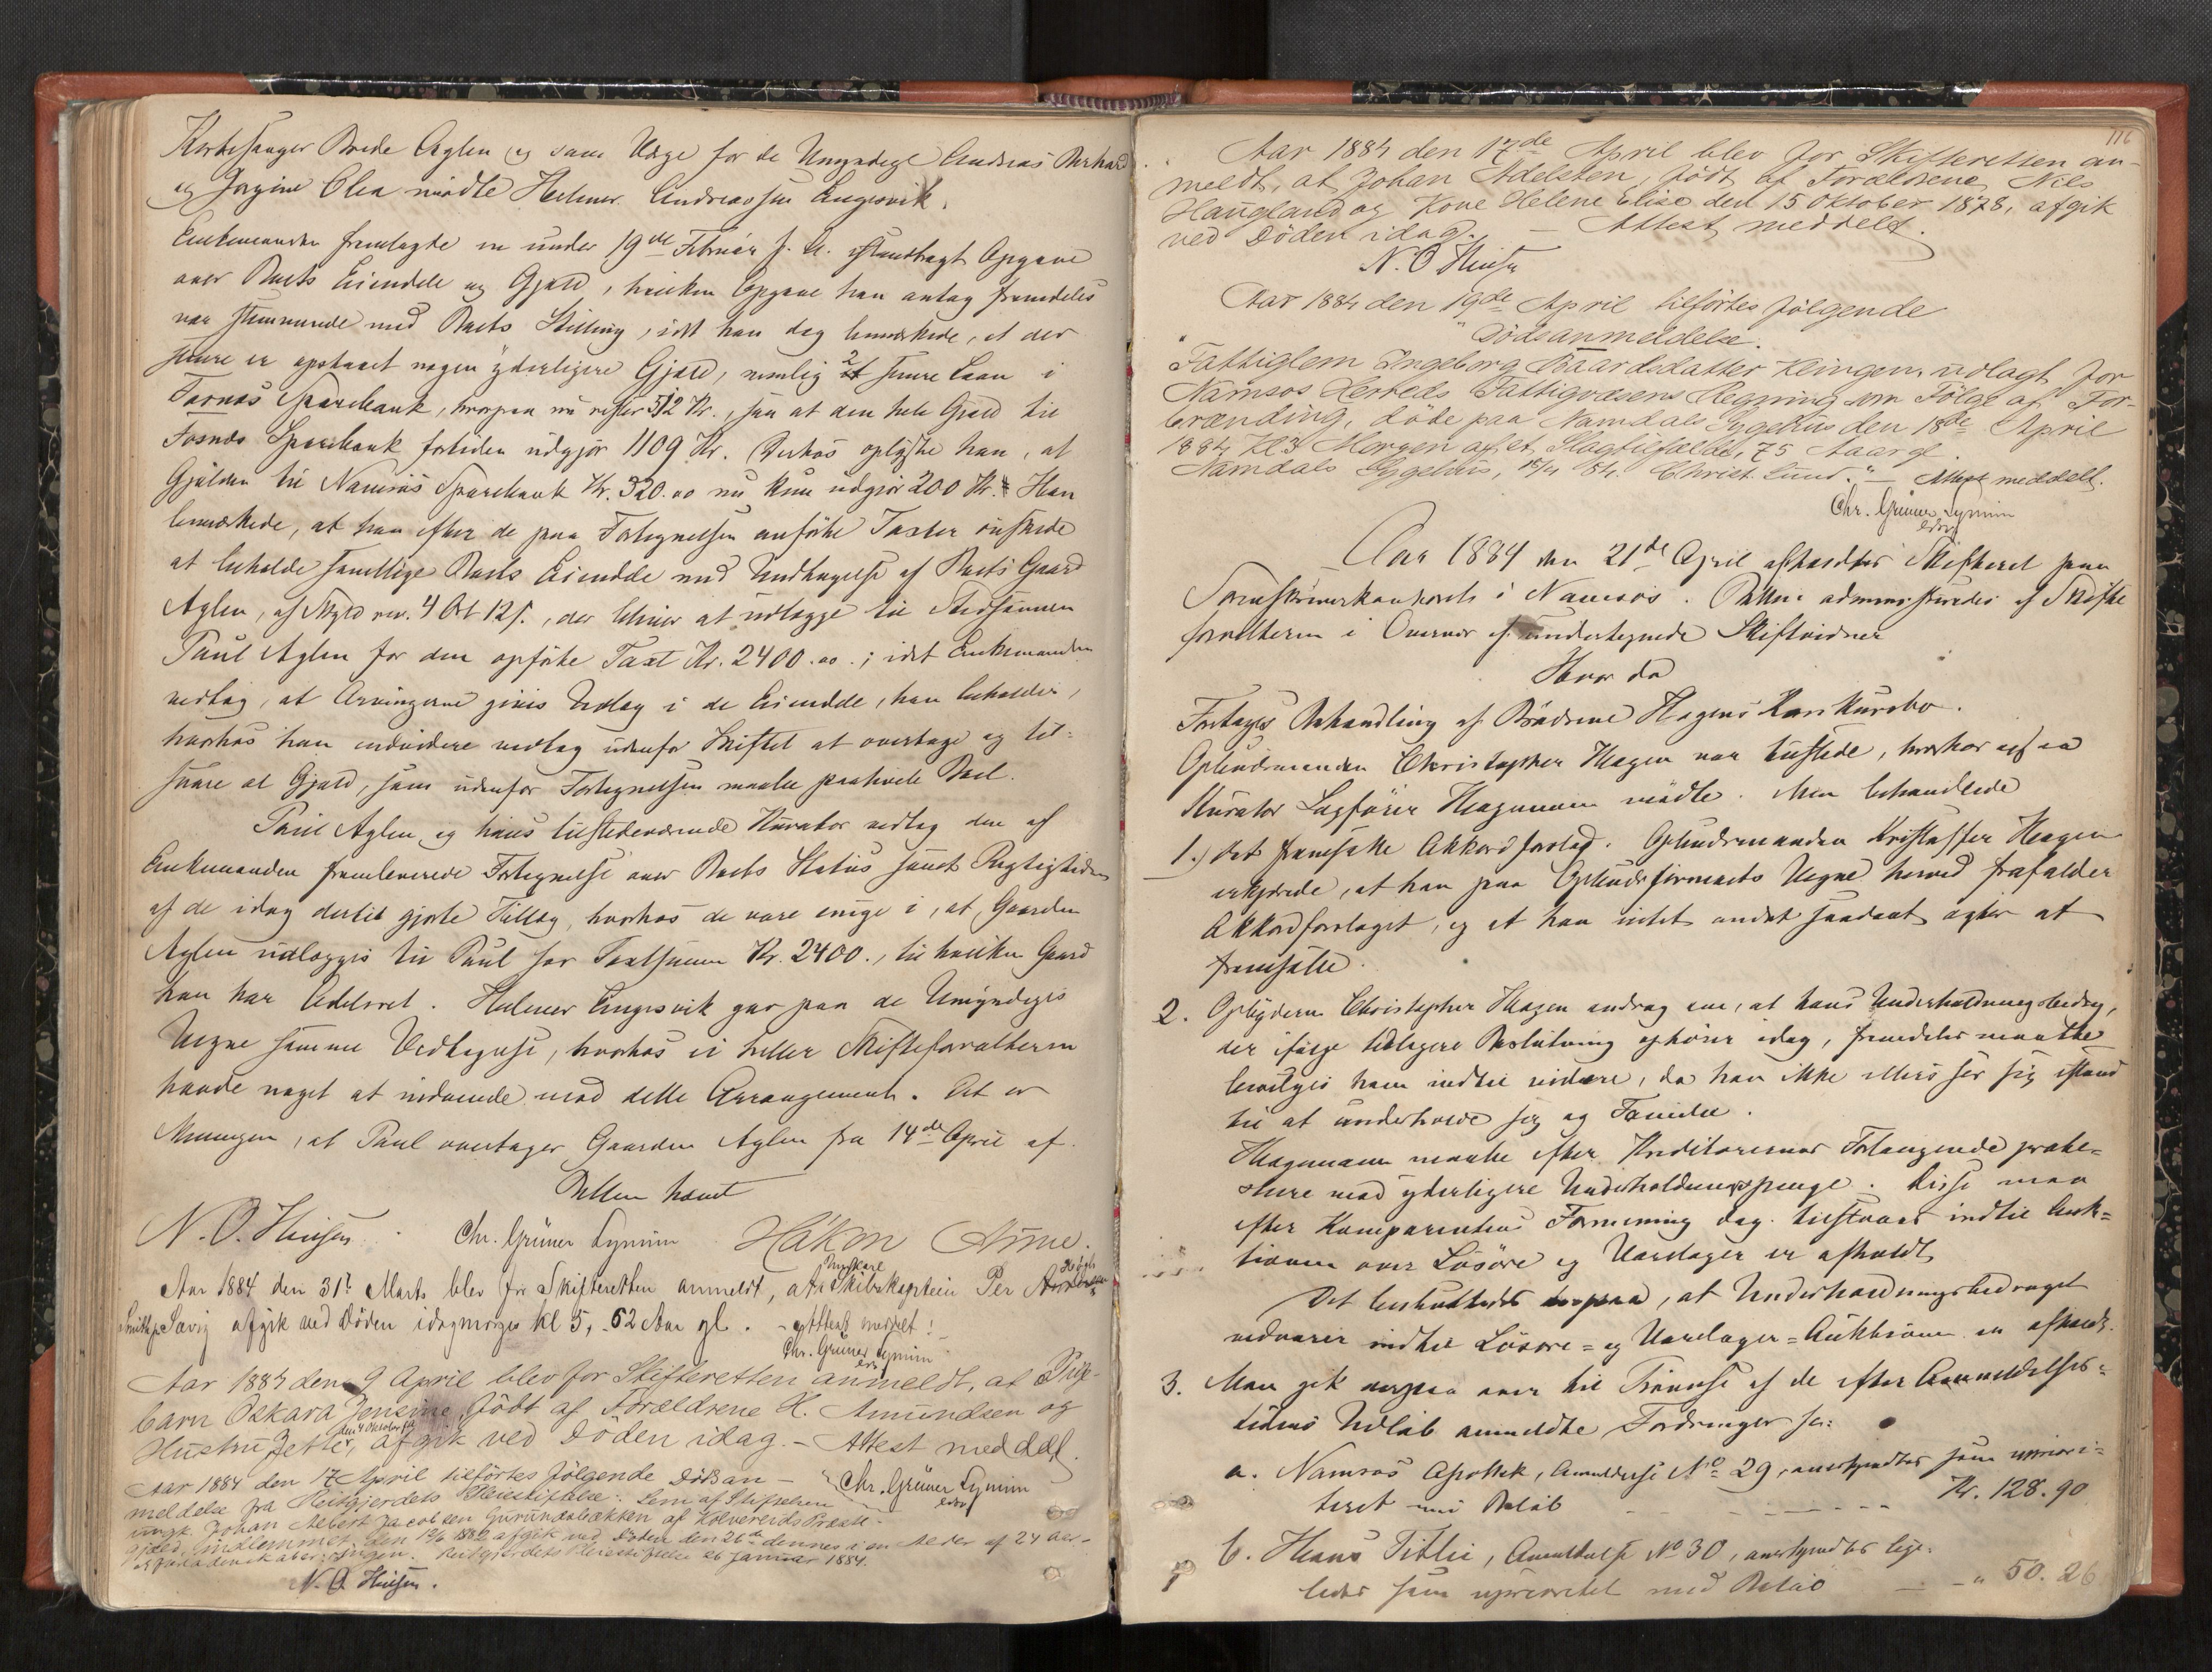 Kirkesanger Brede Aglen og som Værge for de Umyndige Andreas Bernhard
og Jørgine Olea mødte Helmer Andreassen Engesvik.
Enkemanden fremlagte en under 19de Februar f. A. istandbragt Opgave
over Boets Eiendele og Gjæld, hvilken Opgave han antog fremdeles
var stemmende med Boets Stilling, idet han dog bemærkede, at der
senere er opstaaet nogen yderligere Gjæld, nemlig 2 senere Laan i
Fosnæs Sparebank, hvorpaa nu rester 512 Kr., saa at den hele Gjæld til
Fosnæs Sparebank fortiden udgjør 1109 Kr. Derhos oplyste han, at
Gjælden til Namsos Sparebank Kr. 320.00 nu kun udgjør 200 Kr. Han
bemærkede, at han efter de paa Fortegnelsen anførte Taxter ønskede
at beholde samtlige Boets Eiendele med Undtagelse af Boets Gaard
Aglen, af Skyld rev. 4 Ort 12 s., der bliver at udlægge til Stedsønnen
Paul Aglen for den opførte Taxt Kr. 2400.00.; idet Enkemanden
vedtog, at Arvingerne gives Udlæg i de Eiendele, han beholder,
hvorhos han endvidere vedtog udenfor Skiftet at overtage og til-
svare al Gjæld, som udenfor Fortegnelsen maatte paahvile Boet.
Paul Aglen og hans tilstedeværende Kurator vedtog den af
Enkemanden fremleverede Fortegnelse over Boets Status samt Rigtigheden
af de idag dertil gjorte Tillæg, hvorhos de vare enige i, at Gaarden
Aglen udlægges til Paul for Taxtsummen Kr. 2400., til hvilken Gaard
han har Odelsret. Helmer Engesvik gav paa de Umyndiges
Vegne samme Vedtagelse, hvorhos ei heller Skifteforvalteren
havde noget at indvende mod dette Arrangement. Det er
Meningen, at Paul overtager Gaarden Aglen fra 14de April af.
Retten hævet
N. O. Hinsen. Chr. Grüner Lynum Håkon Anme.
Aar 1884 den 31te Marts blev for Skifteretten anmeldt, at Skibskaptein Per
Sævig afgik ved Døden idagmorges kl 5, 52 Aar gl. - Attest meddelt!
Chr. Grüner Lynum
edsv
Aar 1884 den 9 April blev for Skifteretten anmeldt, at Pige-
barn Oskara Jensine, født af Forældrene H. Amundsen og
den 4 Oktober
Hustru Jette, afgik ved Døden idag. - Attest meddelt.
Aar 1884 den 17 April tilførtes følgende Dødsan-
Chr. Grüner Lynum
edsv
meldelse fra Reitgjerdets Pleiestiftelse: Lem af Stiftelsen
ungk. Johan Albert Jacobsen Gurundsbækken af Kolvereids Præste-
gjeld, indlemmet den 12/6 1882 afgik ved Døden den 26de dennes i en Alder af 24 Aar.-
Reitgjerdets Pleiestiftelse 26 Januar 1884.
N. O. Hinsen.
116
Aar 1884 den 17de April blev for Skifteretten an-
meldt, at Johan Adelsten, født af Forældrene Nils
Haugland og Kone Helene Elise den 15 Oktober 1878, afgik
ved Døden idag. - Attest meddelt.
N. O Hinsen
Aar 1884 den 19de April tilførtes følgende
"Dødsanmeldelse.
Fattiglem Ingeborg Baardsdatter Klingen, udlagt for
Namsos Herreds Fattigvæsens Regning som Følge af For-
brænding, døde paa Namdals Sygehus den 18de April
1884 Kl 3 Morgen af et Slagtilfælde, 75 Aar gl.
Namdals Sygehus, 18/4 84. Christ. Lund." - Attest meddelt.
Chr. Grüner Lynum
edsv
Aar 1884 den 21de April afholdtes Skifteret paa
Sorenskriverkontoret i Namsos. Retten administreredes af Skifte
forvalteren i Overvær af undertegnede Skiftevidner
Hvor da
Foretoges Behandling af Brødrene Hagens Konkursbo.
Opbudsmanden Christopher Hagen var tilstede, hvorhos ogsaa
Kurator Sagfører Hagemann mødte. Man behandlede
1.) det fremsatte Akkordforslag. Opbudsmanden Kristoffer Hagen
erklærede, at han paa Opbudsfirmaets Vegne herved frafalder
Akkordforslaget, og at han intet andet saadant agter at
fremsætte.
2. Opbyderen Christopher Hagen androg om, at hans Underholdningsbidrag,
der ifølge tidligere Beslutning ophører idag, fremdeles maatte
bevilges ham indtil videre, da han ikke ellers ser sig istand
til at underholde sig og Familie.
Hagemann maatte efter Kreditorernes Forlangende prote-
stere mod yderligere Underholdningspenge. Disse maa
efter Komparentens Formening dog tilstaaes indtil Auk-
tionen over Løsøre og Varelager er afholdt.
Det besluttedes derpaa, at Underholdningsbidraget
vedvarer indtil Løsøre- og Varelager-Auktionen er afholdt.
3. Man gik derpaa over til Prøvelse af de efter Anmeldelses-
tidens Udløb anmeldte Fordringer saa:
a. Namsos Apothek, Anmeldelse No 29, anerkjendtes som uprior-
teret med Beløb - - - - - Kr. 128.90
b. Hans Fiblie, Anmeldelse No 30, anerkjendtes lige-
ledes som uprioritet med Beløb - - " 50.26